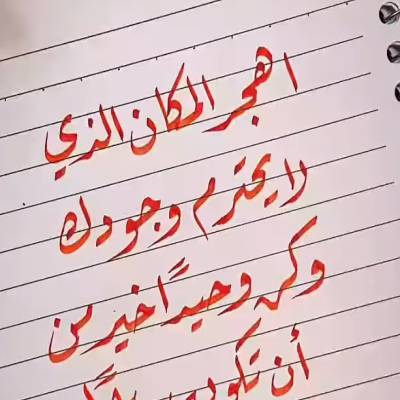 اهجر المكان الذي
لا يحترم وجودك
وكن وحيداً خير من
أن تكون